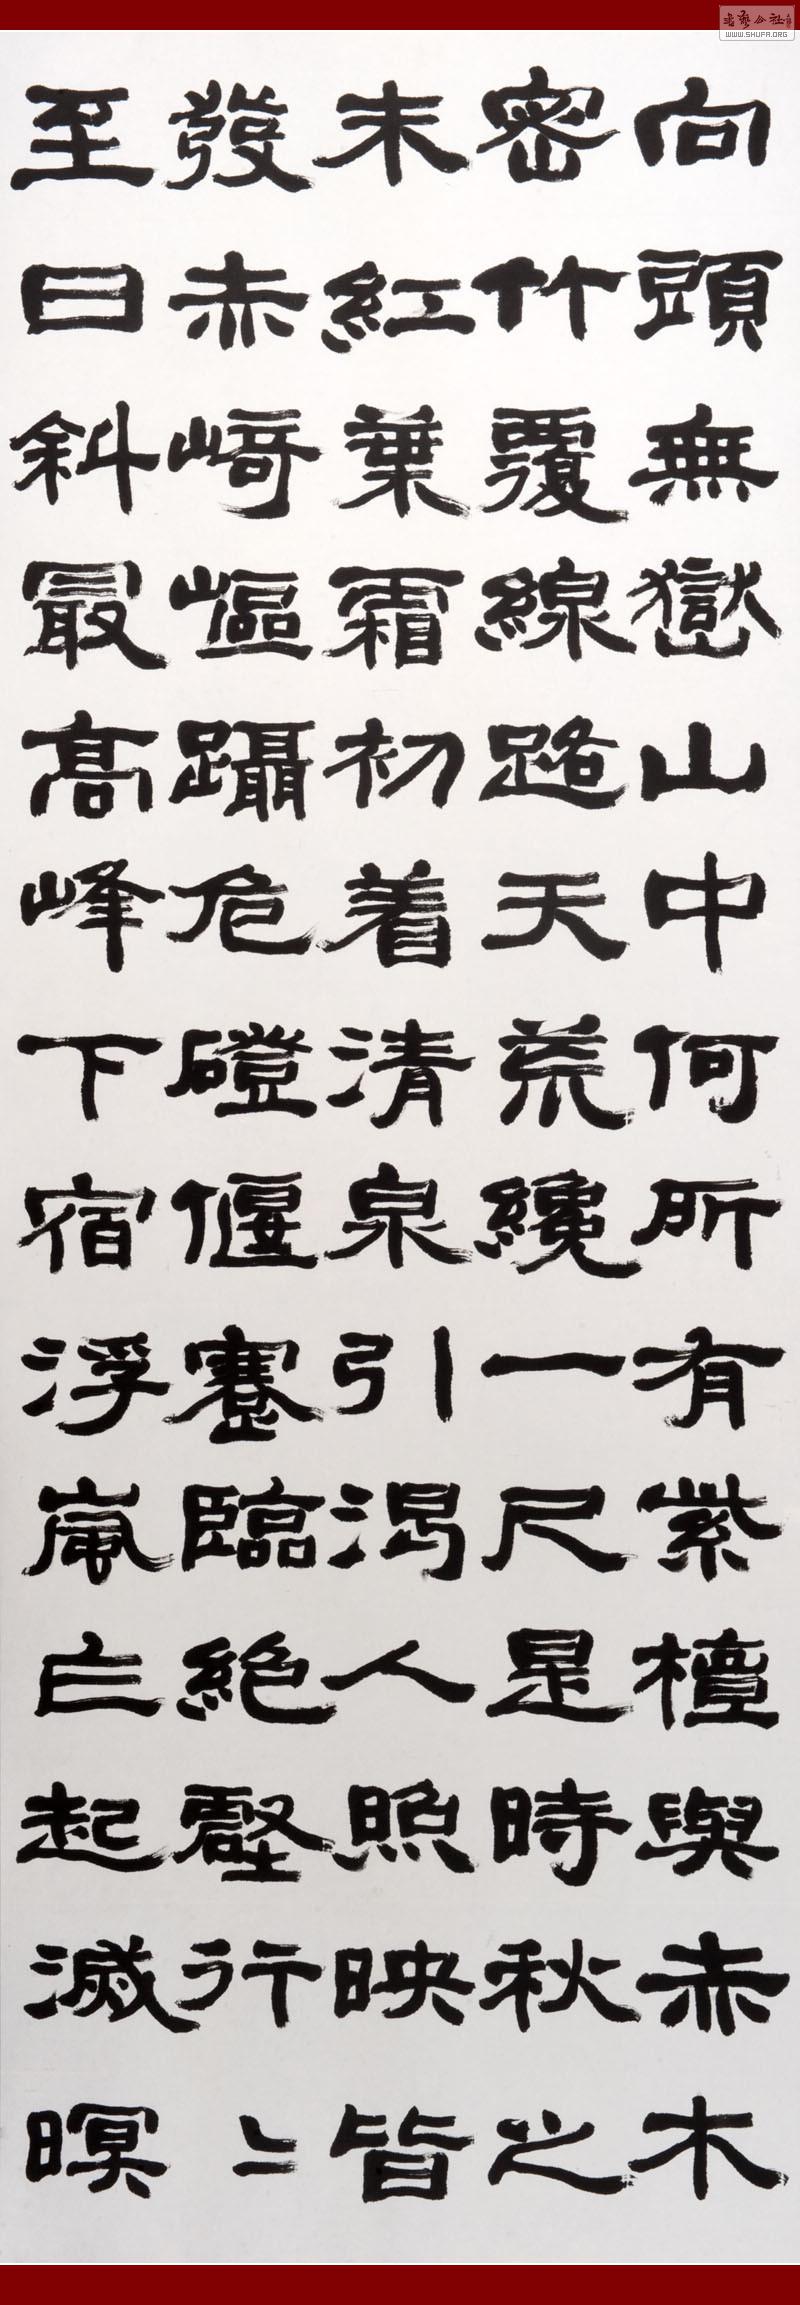 向頭無嶽山中何所有紫檀與赤木
密竹覆線路天荒纔一尺是時秋之
末紅葉霜初着清泉引渴人照映皆
發赤崎嶇躡危磴偃蹇臨絶壑行〻
至日斜最高峰下宿浮嵐亡起滅暝
WWW.SHUFA.ORG